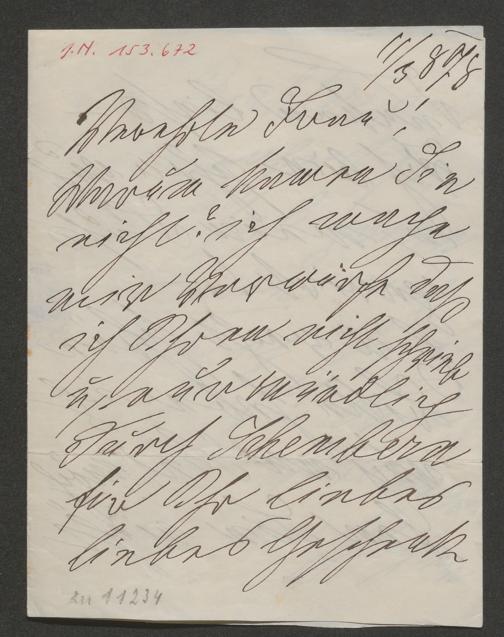 J.N. 153.672
11/3 878
Verehrte Frau!
Warum kamen Sie
nicht? ich mache
mir Vorwürfe daß
ich Ihnen nicht schrieb
u. nur mündlich
durch
für Ihr liebes
liebes Geschenk
zu 11234